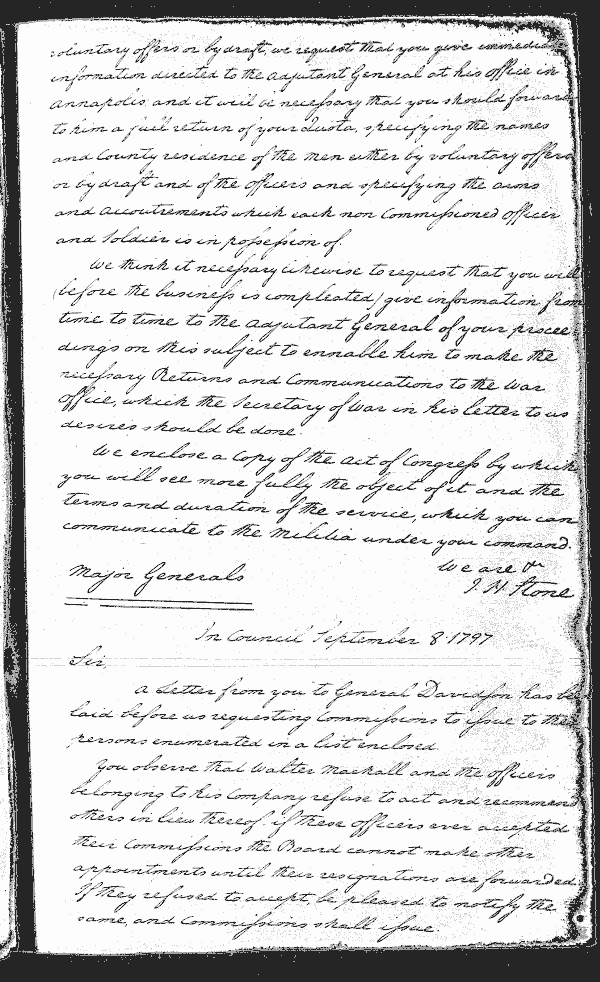 voluntary offers or by draft, we request that you give immediate
information directed to the Adjutant General at his office in
Annapolis and it will be necessary that you should forward
to him a full return of your Quota, specifying the names
and County residence of the men either by voluntary offers
or by draft and of the officers and specifying the arms
and accoutrements which each non Commissioned Officer
and Soldier is in possession of.
We think it necessary likewise to request that you will
(before the business is compleated) give information from
time to time to the Adjutant General of your procee-
dings on this subject to ennable him to make the
necessary Returns and Communications to the War
office, which the Secretary of War in his letter to us
desires should be done.
We enclose a Copy of the Act of Congress by which
you will see more fully the object of it and the
terms and duration of the service, which you can
communicate to the Militia under your command.
We are &c
J. H. Stone
Major Generals
In Council September 8 1797
Sir,
A Letter from you to General Davidson has been
laid before us requesting Commissions to issue to the
persons enumerated in a list enclosed.
You observe that Walter Mackall and the officers
belonging to his Company refuse to act and recommend
others in lieu thereof. if these officers ever accepted
their Commissions the Board cannot make other
appointments until their resignations are forwarded.
If they refused to accept, be pleased to notify the
same, and Commissions shall issue.